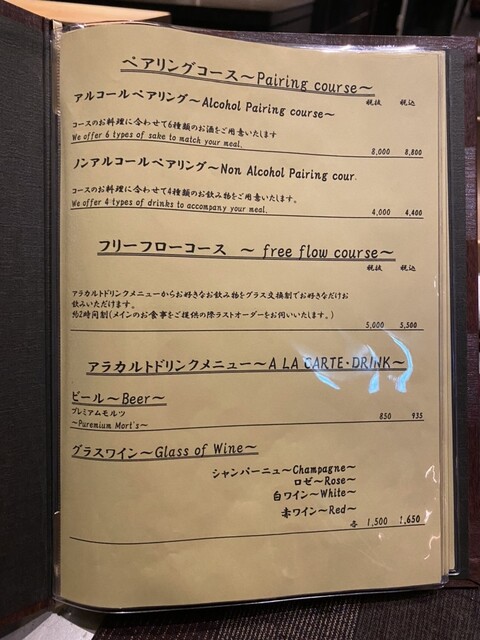 ペアリングコース～Pairing course～
アルコールペアリング～Alcohol Pairing course～
税抜 税込
コースのお料理に合わせて6種類のお酒をご用意いたします
We offer 6 types of sake to match your meal.
8,000 8,800
ノンアルコールペアリング～Non Alcohol Pairing cour.
コースのお料理に合わせて4種類のお飲み物をご用意いたします。
We offer 4 types of drinks to accompany your meal.
4,000 4,400
フリーフローコース ～ free flow course～
税抜 税込
アラカルトドリンクメニューからお好きなお飲み物をグラス交換制でお好きなだけお
飲みいただけます。
約2時間制(メインのお食事をご提供の際ラストオーダーをお伺いいたします。)
5,000 5,500
アラカルトドリンクメニュー～A LA CARTE・DRINK～
ビール～Beer～
プレミアムモルツ
850 935
～Puremium Mort's～
グラスワイン～Glass of Wine～
シャンパーニュ～Champagne～
ロゼ～Rose～
白ワイン～White～
赤ワイン～Red～
各 1,500 1,650